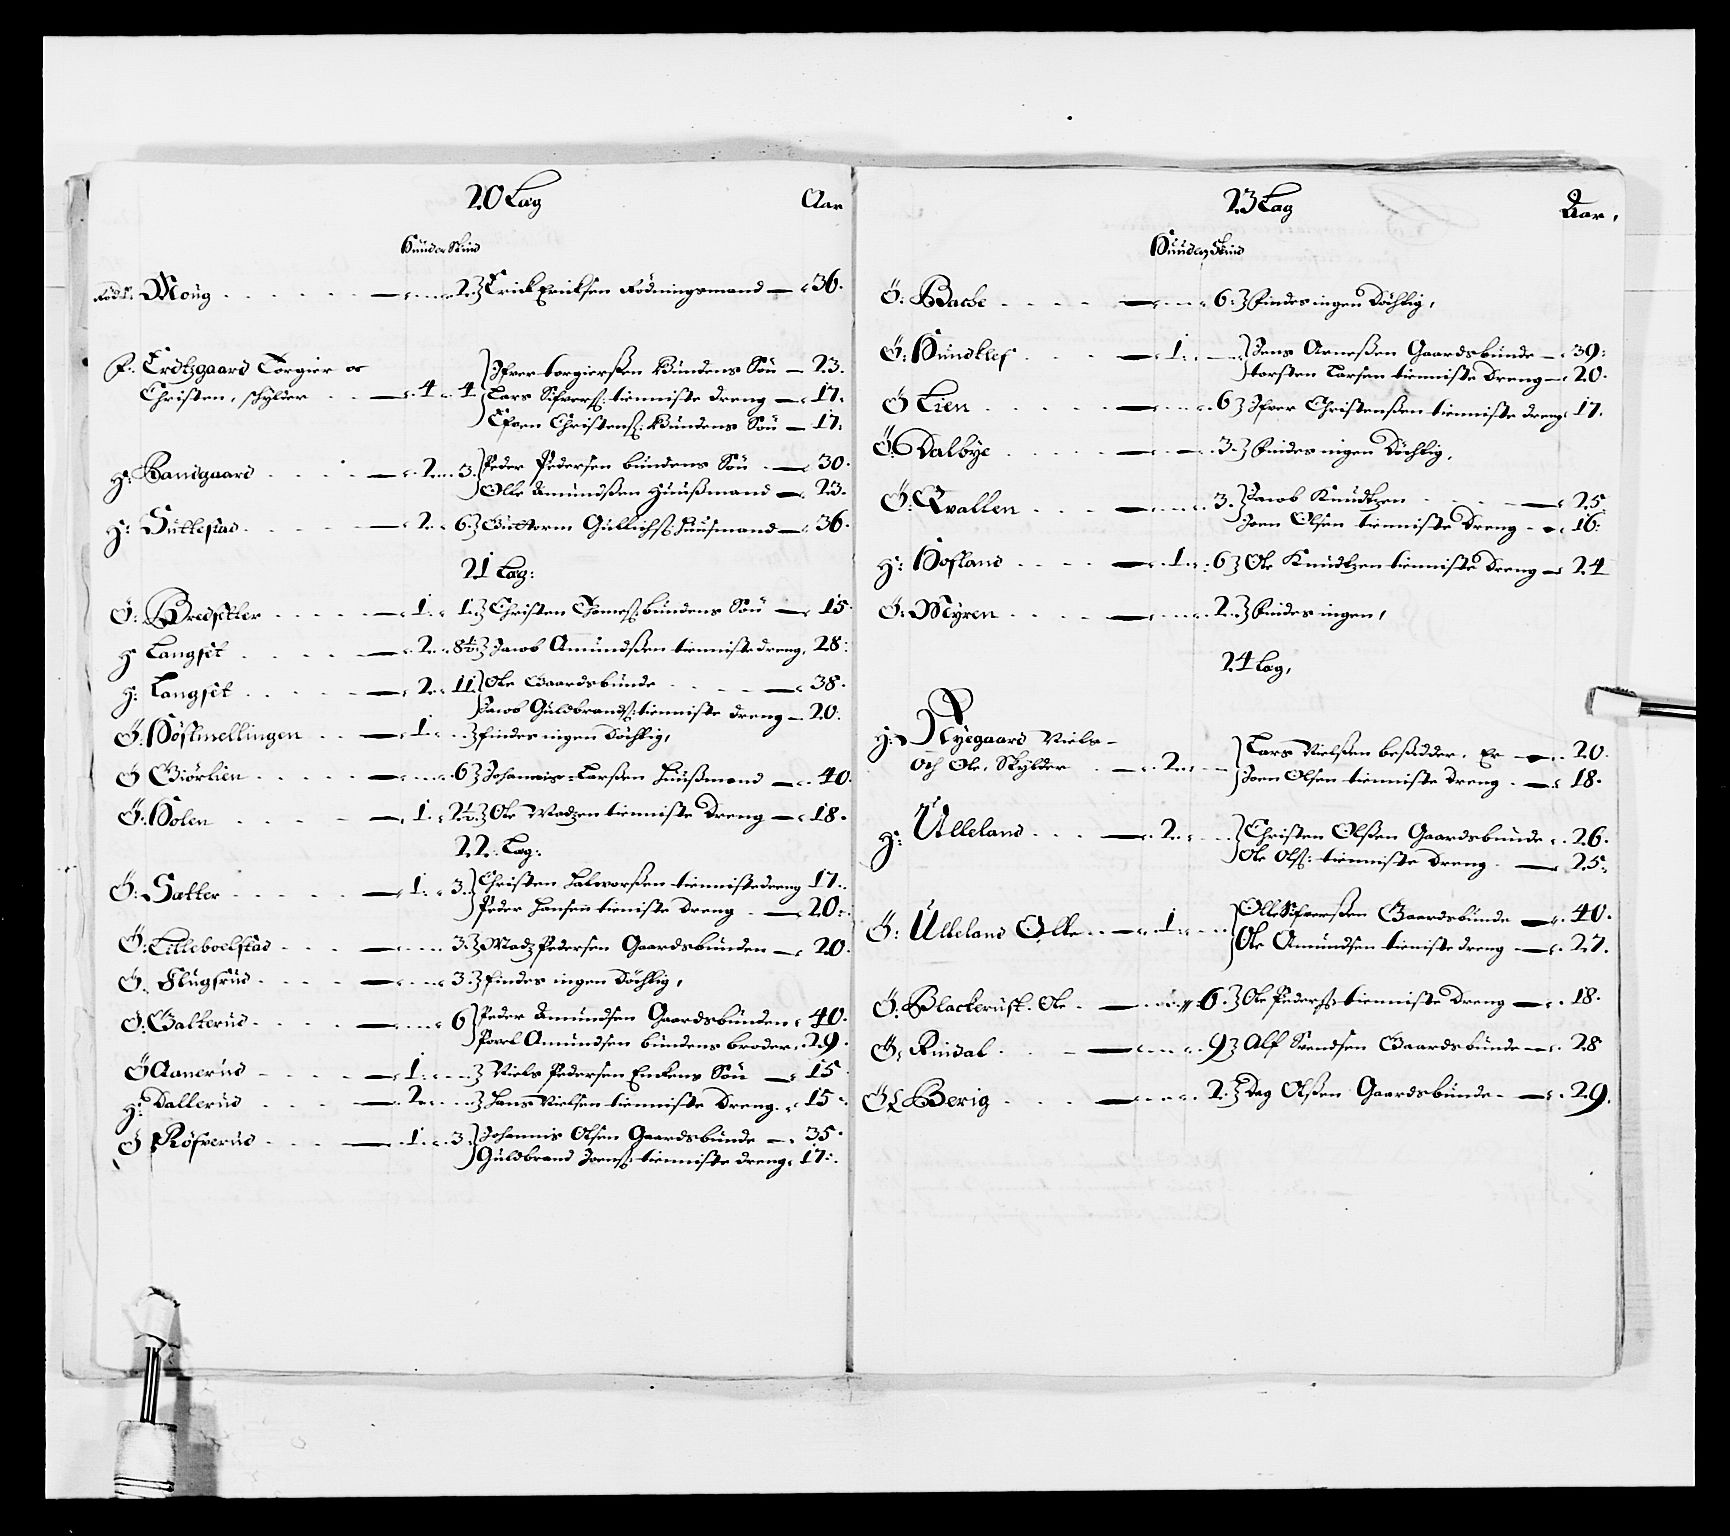 20 Lag Aar
Hunder Skind
Rødn: Moug 2. Erick Ericksen Rødningsmand 36.
F. Crotzgaard Torgier oc Ifver torgierßen Bundens Søn 23.
Christen, schylder 4 4 Lars Sifverß: tienniste dreng 17.
Christenß: Bundens Søn 17.
H: Randgaard 2. 3. Peder Pedersen bundens Søn 30.
Olle Amundßen Huußmand 23.
H: Huttestad 2. 6. Guttorm Gullichß: huusmand 36.
21 Lag:
Ø: Bredsetter 1. 1. Christen Thomeß: bundens Søn 15
H Langset 2. 8½ Jacob Amundßen tiennistedreng. 28.
H: Langset 2. 11 Ole Gaardsbunde 38.
Jacob Guldbrandß: tienniste dreng 20.
Ø: Høstmellingen 1. findes ingen døchtig,
Ø Giørlien 6 Johannis Larßen Huußmand 40.
Ø: Holen 1. 2½ Ole Madzen tienniste Dreng 18.
22. Lag:
Ø: Sætter 1. 3. Christen Halvorßen tiennistedreng 17.
Peder Hansen tieniste Dreng 20.
Ø: Lilleboelstad 3. Madz Pedersen Gaardsbunden 20.
Ø. Flugsrud 3. findes ingen døchtig,
Ø. Balkerud 6 Peder Amundsen Gaardsbunden 40.
Povel Amundsen bundens broder 29.
Ø Aanerud 1. Niels Pedersen Enckens Søn 15
H: Dallerud 2. Hans Nielsen tienniste Dreng. 15
Ø Røfverud 1. 3. Johannis Olsen Gaardsbunde 35.
Guldbrand Joenß: tienniste dreng 17.
23 Lag Aar,
Hunder Skind
Ø: Bache 6. findes ingen Døchtig,
Ø: Hundklef 1. Jens Arneßen Gaardsbunde 39.
torsten Larsen tienniste Dreng 20.
Ø Lien 6 Ifver Christenßen tienniste dreng 17.
Ø: Dalbye 3. findes ingen Døchtig,
Ø: Qvallen 3. Jacob Knudtzen 25
Joen Olsen tienniste Dreng 16.
H: Hofland 1. 6 Ole Knudtzen tienniste Dreng 24
Ø: Myren 2. findes ingen,
24 Lag,
H: Nyegaard Niels Lars Nielßen besidder. Er 20.
Och Ole, Skylder 2. Joen Olsen tienniste dreng 18.
H: Ulleland 2. Christen Olßen Gaardsbunde 26.
Ole Olß: tienniste Dreng 25.
Ø: Ulleland Olle 1. Olle Sifverßen Gaardsbunde 40.
Ole Amundsen tieniste dreng 27.
Ø: Blackerust. Ole 6. Ole Pederß: tienniste Dreng 18.
Ø: Rindal 9 Alf Svendsen Gaardsbunde 28
Ø Berig 2. Dag Olßen Gaardsbunde 29.